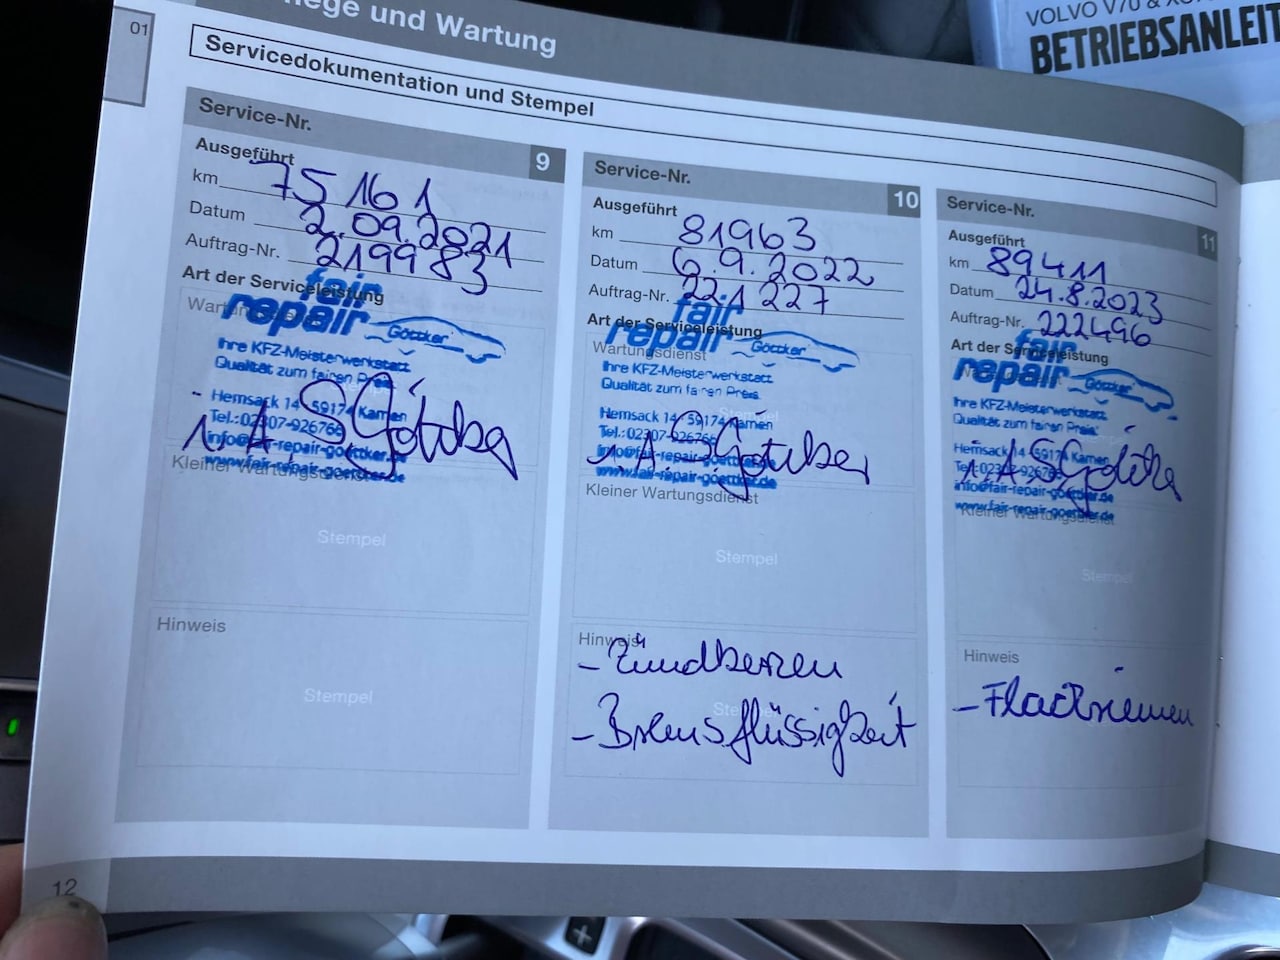 01
Pflege und Wartung
Servicedokumentation und Stempel
Service-Nr.
9
Ausgeführt
km 75 161
Datum 2.09.2021
Auftrag-Nr. 219983
Art der Serviceleistung
Wartungsdienst
fair
repair Göttker
Ihre KFZ-Meisterwerkstatt
Qualität zum fairen Preis
Hemsack 14 · 59174 Kamen
Tel.: 02307-926766
info@fair-repair-goettker.de
www.fair-repair-goettker.de
i.A. SGöttker
Kleiner Wartungsdienst
Stempel
Hinweis
Stempel
12
Service-Nr.
10
Ausgeführt
km 81963
Datum 6.9.2022
Auftrag-Nr. 221 227
Art der Serviceleistung
Wartungsdienst
fair
repair Göttker
Ihre KFZ-Meisterwerkstatt
Qualität zum fairen Preis
Stempel
Hemsack 14 · 59174 Kamen
Tel.: 02307-926766
info@fair-repair-goettker.de
www.fair-repair-goettker.de
i.A. SGöttker
Kleiner Wartungsdienst
Stempel
Hinweis
- Zündkerzen
- Bremsflüssigkeit
Service-Nr.
11
Ausgeführt
km 89411
Datum 24.8.2023
Auftrag-Nr. 222496
Art der Serviceleistung
fair
repair Göttker
Ihre KFZ-Meisterwerkstatt
Qualität zum fairen Preis
Hemsack 14 · 59174 Kamen
Tel.: 02307-92676
info@fair-repair-goettker.de
www.fair-repair-goettker.de
i.A. SGöttker
Kleiner Wartungsdienst
Stempel
Hinweis
- Flachriemen
VOLVO V70 &
BETRIEBSANLEIT